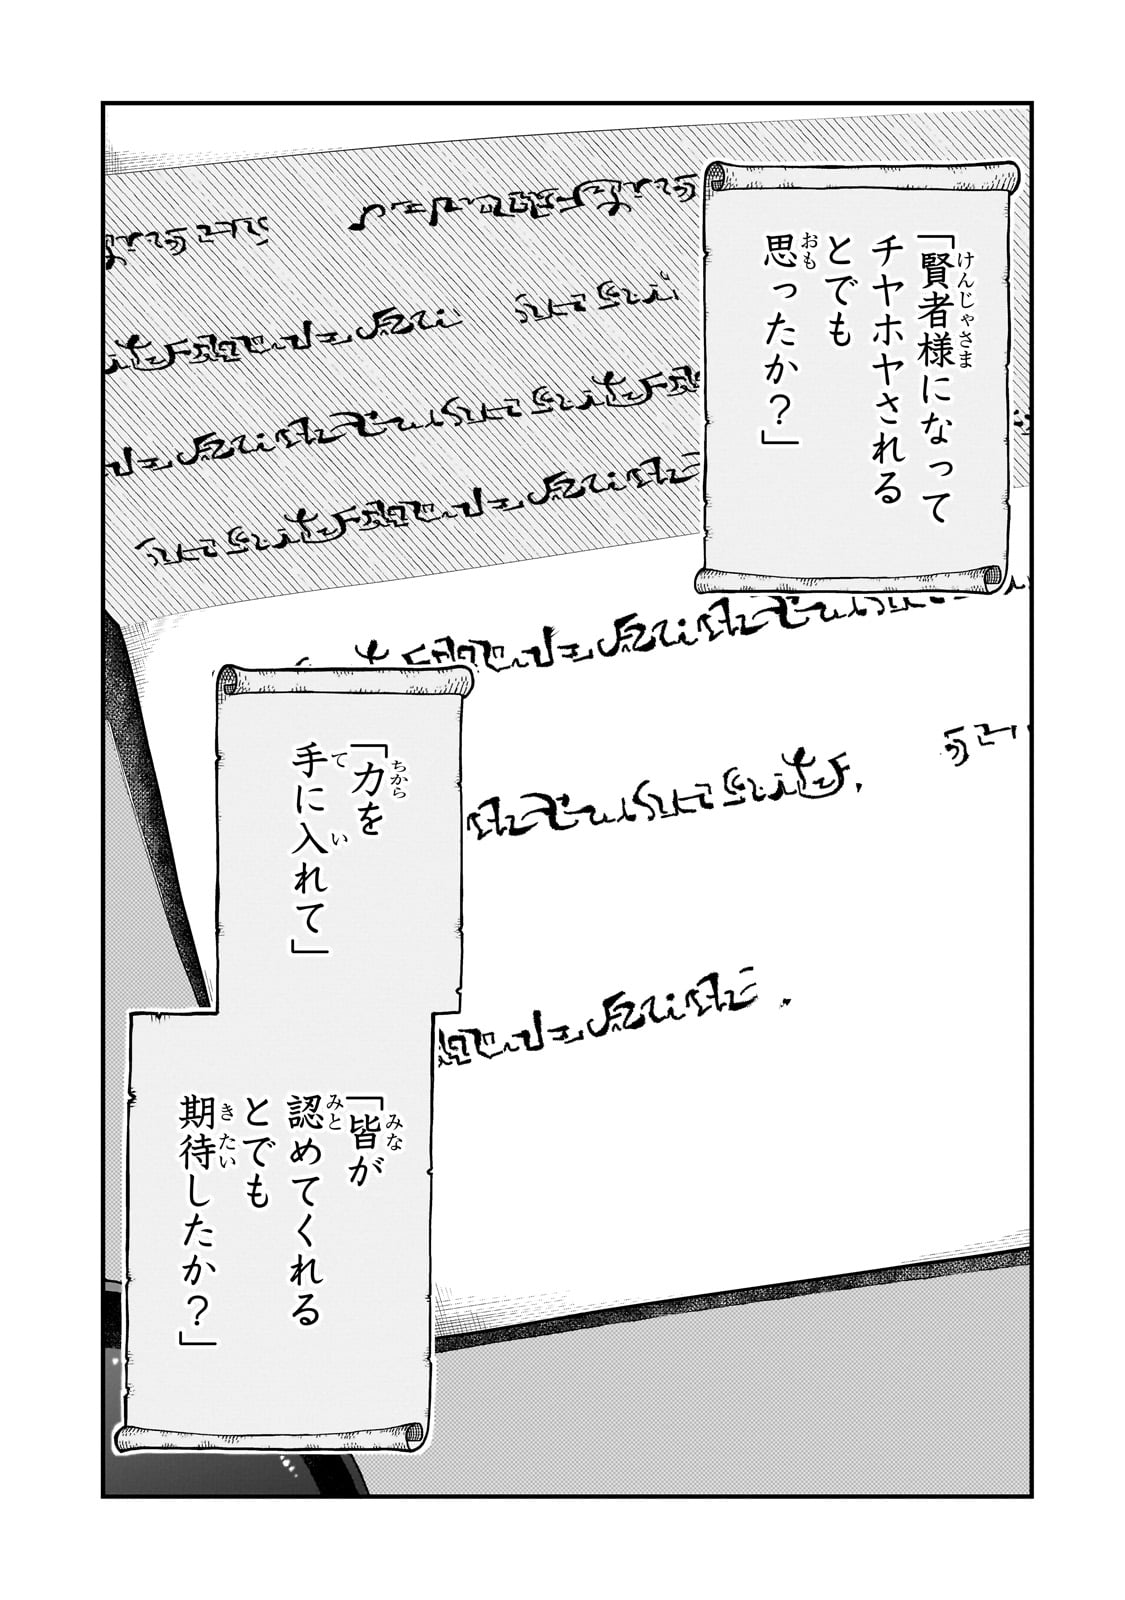 「賢者様になって
チヤホヤされる
とでも
思ったか？」
「力を
手に入れて」
「皆が
認めてくれる
とでも
期待したか？」